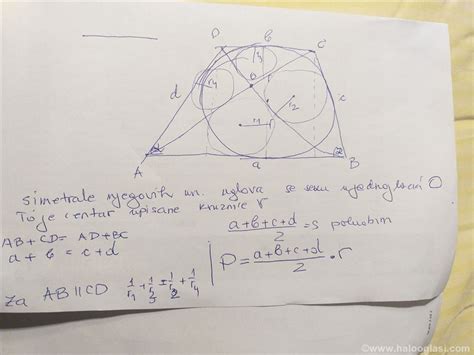 D b C
r₃
r₄
d O c
r₂
r₁
A a B
simetrale njegovih un. uglova se seku u jednoj tački O
To je centar upisane kružnice r
AB + CD = AD + BC
a + b = c + d
a+b+c+d / 2 = s poluobim
P = a+b+c+d / 2 · r
Za AB || CD 1/r₁ + 1/r₃ = 1/r₂ + 1/r₄
www.halooglasi.com